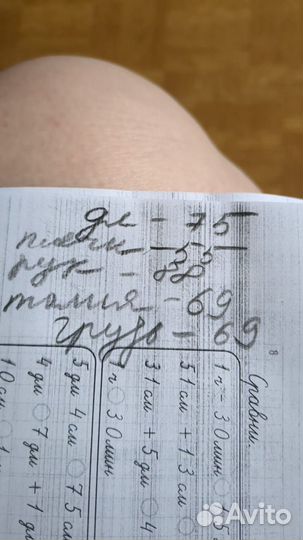 дл - 75
плечи - 33
рук -
талия - 69
грудь - 69
8
Сравни.
1 ч - 30 мин
51 см + 13 см
31 см + 5 дм ○ 4
1 ч ○ 30 мин
5 дм 4 см ○ 75 см
4 дм ○ 7 дм + 1 дм
10 см
Avito